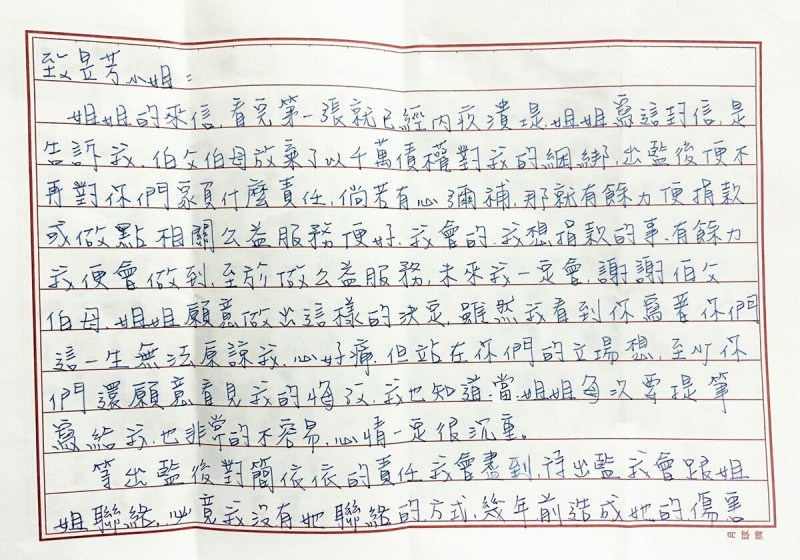 致昱芳小姐:
姐姐的來信,看見第一張就已經內疚潰堤,姐姐寫這封信,是
告訴我,伯父伯母放棄了以千萬債權對我的綑綁,出監後便不
再對你們家負什麼責任,倘若有心彌補,那就有餘力便捐款
或做點相關公益服務便好,我會的,我想捐款的事,有餘力
我便會做到,至於做公益服務,未來我一定會,謝謝伯父
伯母,姐姐願意做出這樣的決定,雖然我看到你寫著你們
這一生無法原諒我,心好痛,但站在你們的立場想,至少你
們還願意看見我的悔改,我也知道,當姐姐每次要提筆
寫給我,也非常的不容易,心情一定很沉重。
等出監後對簡依依的責任我會盡到,待出監我會跟姐
姐聯絡,必竟我沒有她聯絡的方式,幾年前造成她的傷害